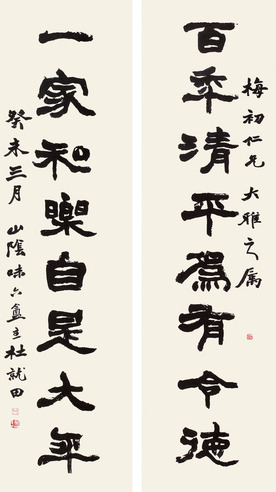 梅初仁兄大雅之属
百秊清平為有令徳
一家和樂自是大年
癸未三月山陰味六盦主杜就田